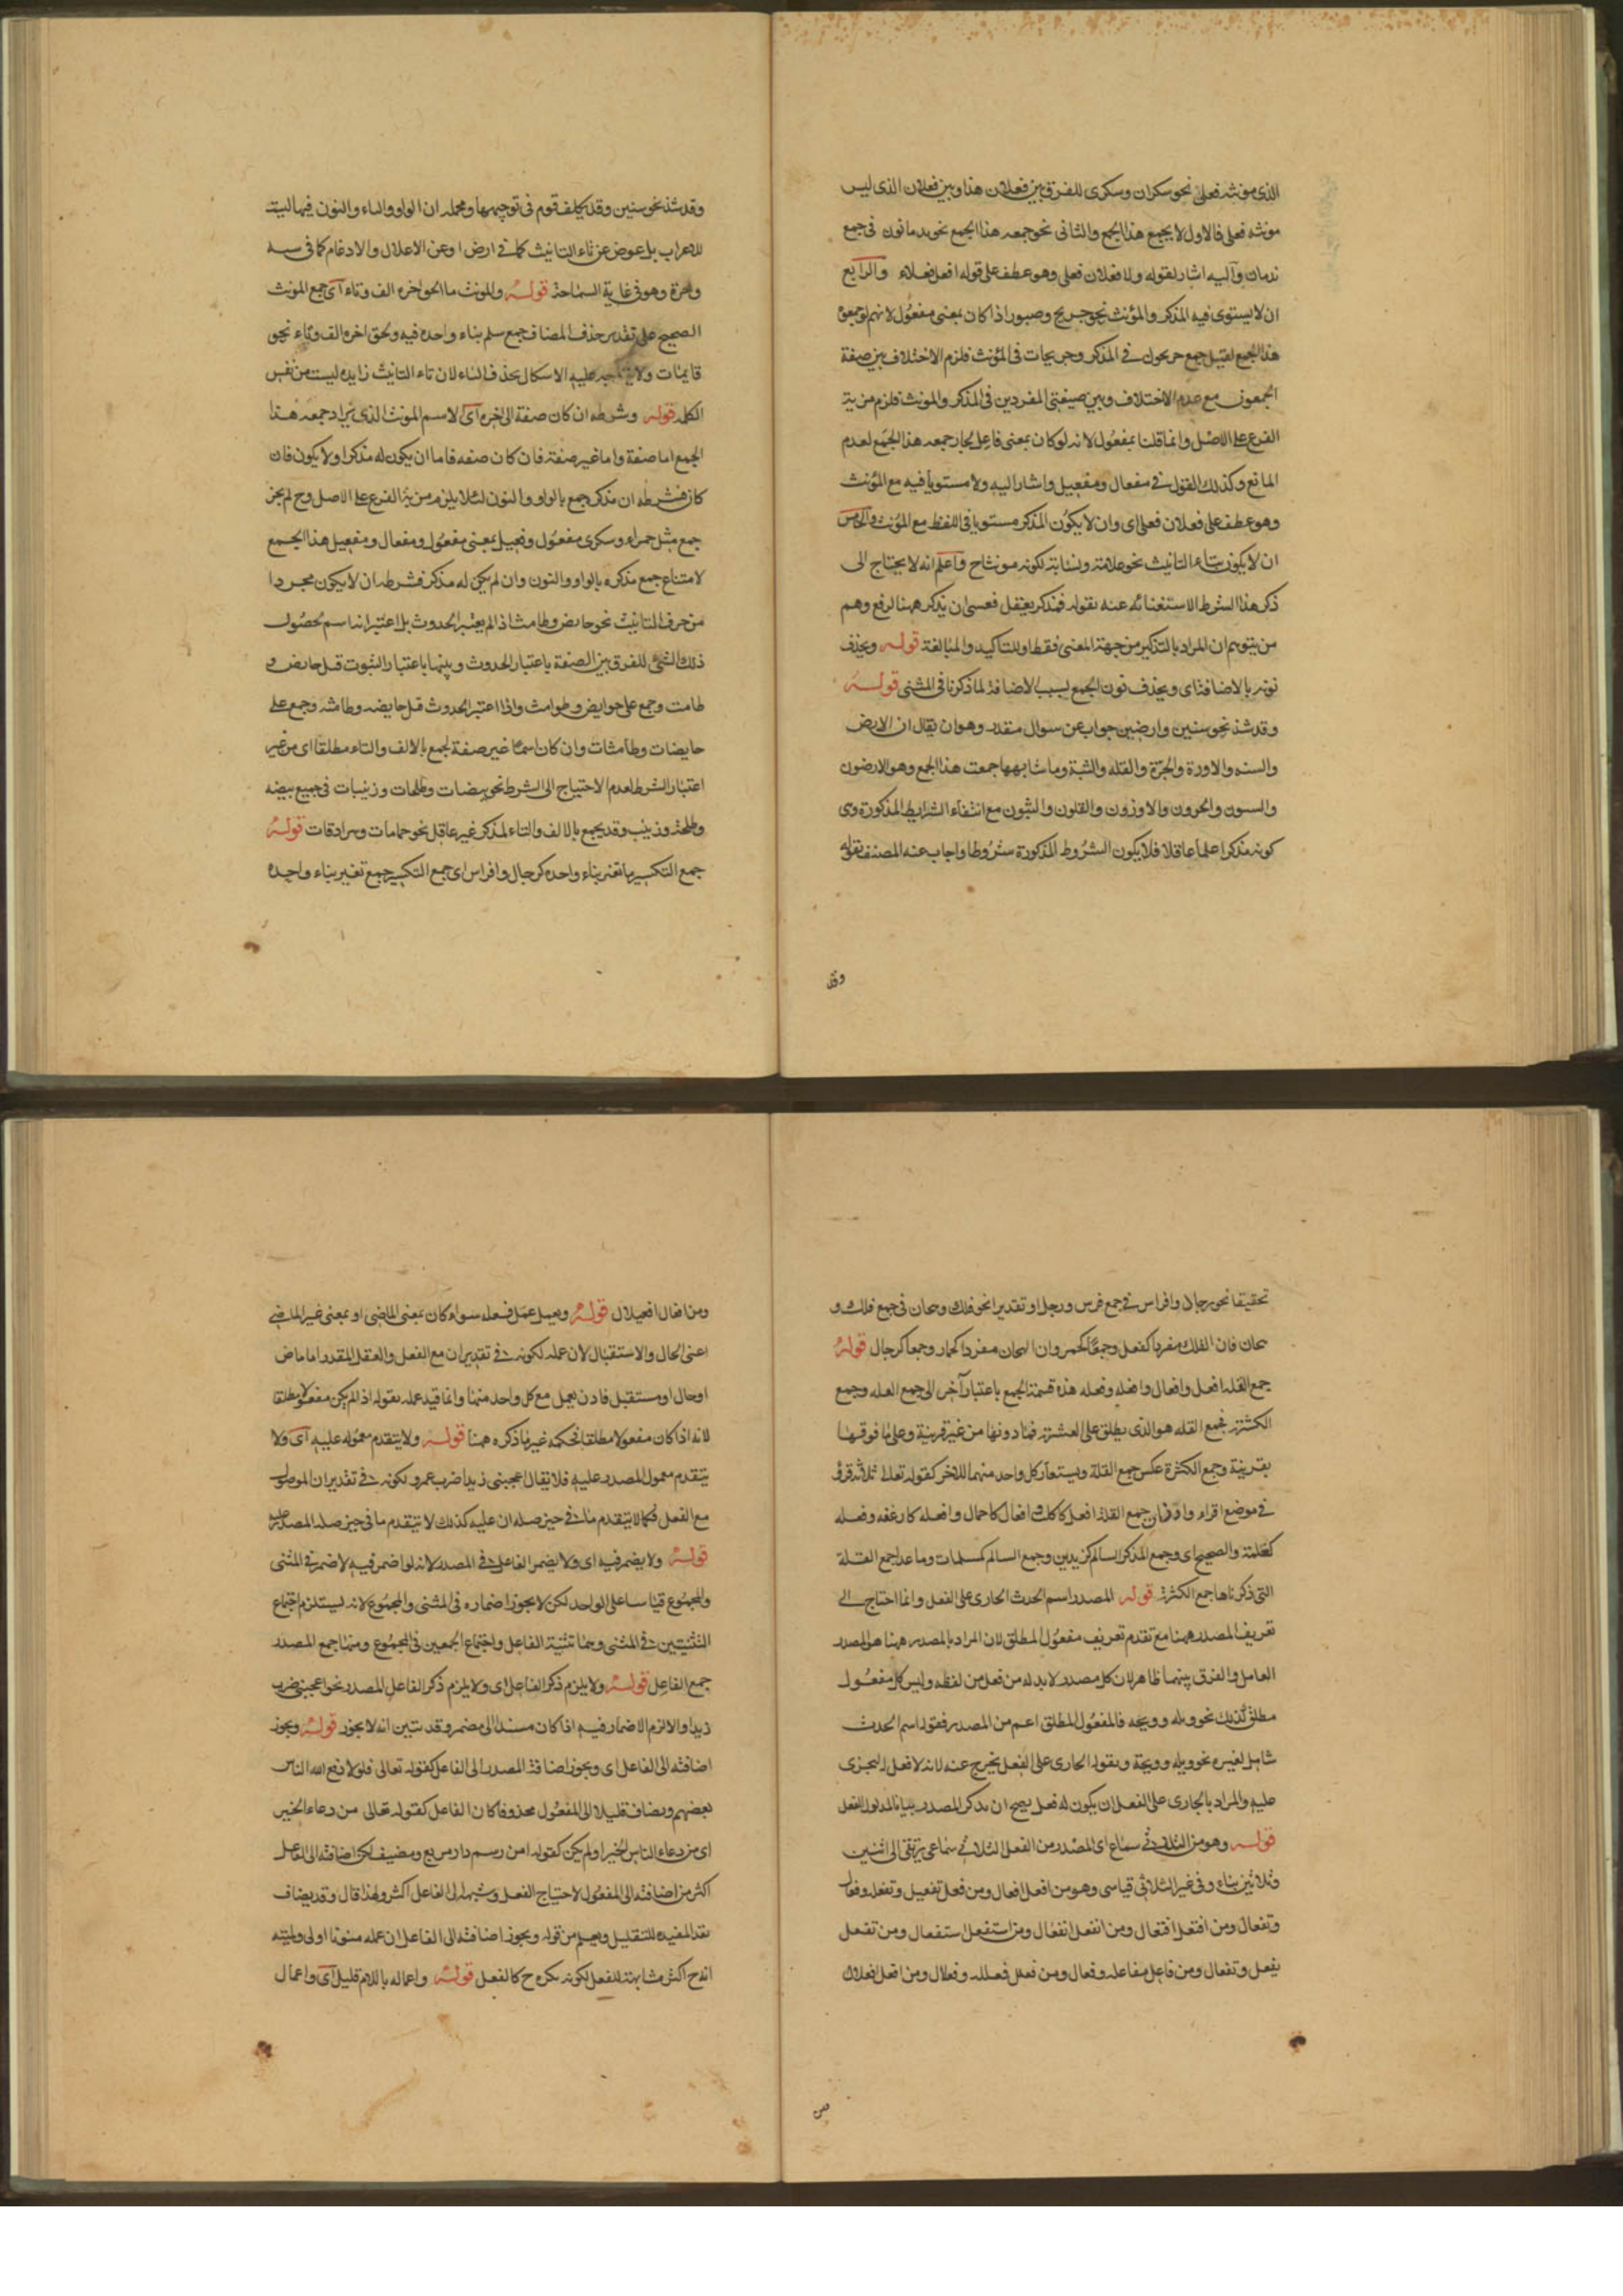 الذى مونثه فعلى نحو سكران وسكرى للفرق بين فعلان هذا وبين فعلان الذى ليس
مونثه فعلى فالاول لا يجمع هذا الجمع والثانى نحو جمعه هذا الجمع نحو ندمانون فى جمع
ندمان واليه اشار بقوله ولا فعلان فعلى وهو عطف على قوله افعل فعلاء والرابع
ان لا يستوى فيه المذكر والمؤنث نحو جريح وصبور اذا كان بمعنى مفعول لانهم لو جمعوا
هذا الجمع لقيل جمع جريحون فى المذكر وجريحات فى المؤنث فلزم الاختلاف بين صيغة
الجمعين مع عدم الاختلاف وبين صيغتى المفردين فى المذكر والمونث فلزم مزية
الفرع على الاصل وانما قلنا بمفعول لانه لو كان بمعنى فاعل لجاز جمعه هذا الجمع لعدم
المانع وكذلك القول فى مفعال ومفعيل واشار اليه ولا مستويا فيه مع المؤنث
وهو عطف على فعلان فعلى اى وان لا يكون المذكر مستويا فى اللفظ مع المؤنث والخامس
ان لا يكون بتاء التانيث نحو علامة ونسابة لكونه مونثا ح واعلم انه لا يحتاج الى
ذكر هذا الشرط الاستغنائه عنه بقوله فمذكر يعقل فعسى ان يذكر ههنا لرفع وهم
من يتوهم ان المراد بالتذكير من جهة المعنى فقط او للتاكيد والمبالغة قوله ويحذف
نونه بالاضافة اى ويحذف نون الجمع بسبب الاضافة لما ذكرنا فى المثنى قوله
وقد شذ نحو سنين وارضين جواب عن سوال مقدر وهو ان يقال ان الارض
والسنه والاوزة والحرة والقله والثبة وما شابهها جمعت هذا الجمع وهو الارضون
والسنون والحرون والاوزون والقلون والثبون مع انتفاء الشرايط المذكورة وى
كونه مذكرا علما عاقلا فلا يكون الشروط المذكورة شروطا واجاب عنه المصنف بقوله
وقد
وقد شذ نحو سنين وقد تكلف قوم فى توجيهها ومحمله ان الواو والياء والنون فيها ليت
للاعراب بل عوض عن تاء التانيث كما فى ارض او عن الاعلال والادغام كما فى سنه
وحرة وهو فى غاية السماحة قوله والمونث ما الحق اخره الف وتاء اى جمع المونث
الصحيح على تقدير حذف المضاف جمع سلم بناء واحده فيه ولحق اخره الف وتاء نحو
قايمات ولا يتجه عليه الاشكال بحذف التاء لان تاء التانيث زايده ليست من نفس
الكلمه قوله وشرطه ان كان صفة الى اخره اى الاسم المونث الذى يراد جمعه هذا
الجمع اما صفة واما غير صفة فان كان صفه فاما ان يكون له مذكرا ولا يكون فان
كان فشرطه ان مذكره جمع بالواو والنون لئلا يلزم مزية الفرع على الاصل وح لم يجز
جمع مثل حمراء وسكرى مفعول وفعيل بمعنى مفعول ومفعال ومفعيل هذا الجمع
لامتناع جمع مذكره بالواو والنون وان لم يكن له مذكر فشرطه ان لا يكون مجردا
من حرف التانيث نحو حايض وطامث اذ الم يعتبر الحدوث بل اعتبر انها اسم لحصول
ذلك الشئ للفرق بين الصفة باعتبار الحدوث وبينها باعتبار الثبوت قيل حايض و
طامث وجمع على حوايض وطوامث واذا اعتبر الحدوث قيل حايضه وطامثه وجمع على
حايضات وطامثات وان كان اسمًا غير صفة لجمع بالالف والتاء مطلقا اى من غير
اعتبار الشرط لعدم الاحتياج الى الشرط نحو بيضات وطلحات وزينبات فى جميع بيضه
وطلحة وزينب وقد يجمع بالالف والتاء المذكر غير عاقل نحو حمامات وسرادقات قوله
جمع التكسير ما تغير بناء واحده كرجال وافراس اى جمع التكسير جمع تغير بناء واحده
تحقيقا نحو رجال وافراس فى جمع فرس ورجل او تقديرا نحو فلك وهجان فى جمع فلك و
هجان فان الفلك مفردا كقفل وجمعًا كحمر وان الهجان مفردا كحمار وجمعا كرجال قوله
جمع القله افعل وافعال وافعله وفعله هذه قسمة الجمع باعتبار آخر الى جمع القله وجمع
الكثرة فجمع القله هو الذى يطلق على العشرة فما دونها من غير قرينة وعلى ما فوقها
بقرينة وجمع الكثرة عكس جمع القلة ويستعار كل واحد منهما للاخر كقوله تعالى ثلاثة قروء
فى موضع اقراء واوزان جمع القلة افعل كاكلب وافعال كاحمال وافعله كارغفه وفعله
كغلمة والصحيح اى وجمع المذكر السالم كزيدين وجمع السالم كمسلمات وما عدا جمع القلة
التى ذكرناها جمع الكثرة قوله المصدر اسم الحدث الجارى على الفعل وانما احتاج الى
تعريف المصدر ههنا مع تقدم تعريف مفعول المطلق لان المراد بالمصدر ههنا هو المصدر
العامل والفرق بينهما ظاهر لان كل مصدر لابد له من فعل من لفظه وليس كل مفعول
مطلق كذلك نحو ويله وويحه فالمفعول المطلق اعم من المصدر فقوله اسم الحدث
شامل لغيره نحو ويله وويحة وبقوله الجارى على الفعل يخرج عنه لانه لا فعل له ليجرى
عليه والمراد بالجارى على الفعل ان يكون له فعل يصح ان يذكر المصدر بيانا لمدلول الفعل
قوله وهو من الثلاثى سماع اى المصدر من الفعل الثلاثى سماعى يرتقى الى اثنين
وثلاثين بناء وفى غير الثلاثى قياسى وهو من افعل افعال ومن فعل تفعيل وتفعله وفعال
وتفعال ومن افتعل افتعال ومن انفعل انفعال ومن استفعل استفعال ومن تفعل
تفعل وتفعال ومن فاعل مفاعله وفعال ومن فعلل فعلله وفعلال ومن افعل افعلال
ومن افعال افعيلال قوله ويعمل عمل فعله سواء كان بمعنى الماضى او بمعنى غير الماضى
اعنى الحال والاستقبال لان عمله لكونه فى تقدير ان مع الفعل والفعل المقدر اما ماض
او حال او مستقبل فاذن يعمل مع كل واحد منها وانما قيد عمله بقوله اذ الم يكن مفعولا مطلقا
لانه اذا كان مفعولا مطلقا فحكمه غير ما ذكره ههنا قوله ولا يتقدم معموله عليه اى ولا
يتقدم معمول المصدر عليه فلا يقال اعجبنى زيدا ضرب عمرو لكونه فى تقدير ان الموصول
مع الفعل فكما لا يتقدم ما فى حيز صله ان عليه كذلك لا يتقدم ما فى حيز صله المصدر عليه
قوله ولا يضمر فيه اى ولا يضمر الفاعل فى المصدر لانه لو اضمر فيه لاضمر فى المثنى
والمجموع قياسا على الواحد لكن لا يجوز اضماره فى المثنى والمجموع لانه يستلزم اجتماع
التثنيتين فى المثنى وهما تثنية الفاعل واجتماع الجمعين فى المجموع ومنها جمع المصدر
جمع الفاعل قوله ولا يلزم ذكر الفاعل اى ولا يلزم ذكر الفاعل للمصدر نحو اعجبنى ضرب
زيدا والا لزم الاضمار فيه اذا كان مسندا الى مضمر وقد تبين انه لا يجوز قوله ويجوز
اضافته الى الفاعل اى ويجوز اضافة المصدر الى الفاعل كقوله تعالى فلولا دفع الله الناس
بعضهم ويضاف قليلا الى المفعول محذوفا كان الفاعل كقوله تعالى من دعاء الخير
اى من دعاء الناس الخير او لم يكن كقوله امن رسم دار مربع ومصيف لكن اضافته الى الفاعل
اكثر من اضافته الى المفعول لاحتياج الفعل وشبهه الى الفاعل اكثر ولهذا قال وقد يضاف
بقد المفيده للتقليل ويعلم من قوله ويجوز اضافته الى الفاعل ان عمله منونا اولى
انه ح اكثر مشابهة للفعل لكونه نكره ح كالفعل قوله واعماله باللام قليل اى واعمال